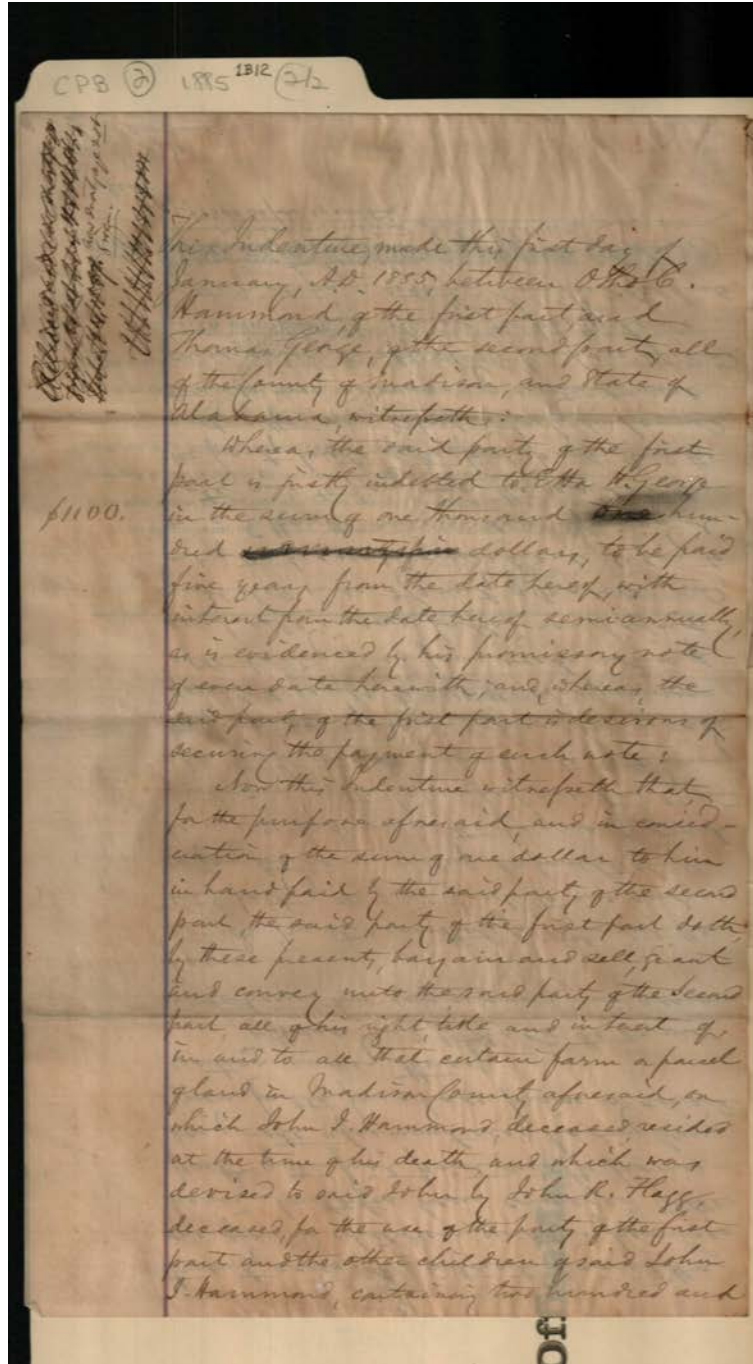 CPB 2 1885 1B12 2/2
This Indenture, made this first day of
January, A.D. 1885, between Otho C.
Hammond, of the first part, and
Thomas George, of the second part, all
of the County of Madison, and State of
Alabama, witnesseth:
Whereas, the said party of the first
part is justly indebted to Etta H. George
$1100.
in the sum of one thousand one hun-
dred dollars, to be paid
five years from the date hereof, with
interest from the date hereof semiannually,
as is evidenced by his promissory note
of even date herewith; and, whereas, the
said party of the first part is desirous of
securing the payment of such note:
Now this Indenture witnesseth that,
for the purpose aforesaid, and in consid-
eration of the sum of one dollar to him
in hand paid by the said party of the second
part, the said party of the first part doth,
by these presents, bargain and sell, grant
and convey unto the said party of the second
part, all of his right, title and interest of,
in and to all that certain farm or parcel
of land in Madison County aforesaid, on
which John I. Hammond, deceased, resided
at the time of his death, and which was
devised to said John by John R. Flagg,
deceased, for the use of the party of the first
part and the other children of said John
I. Hammond, containing two hundred and
Off